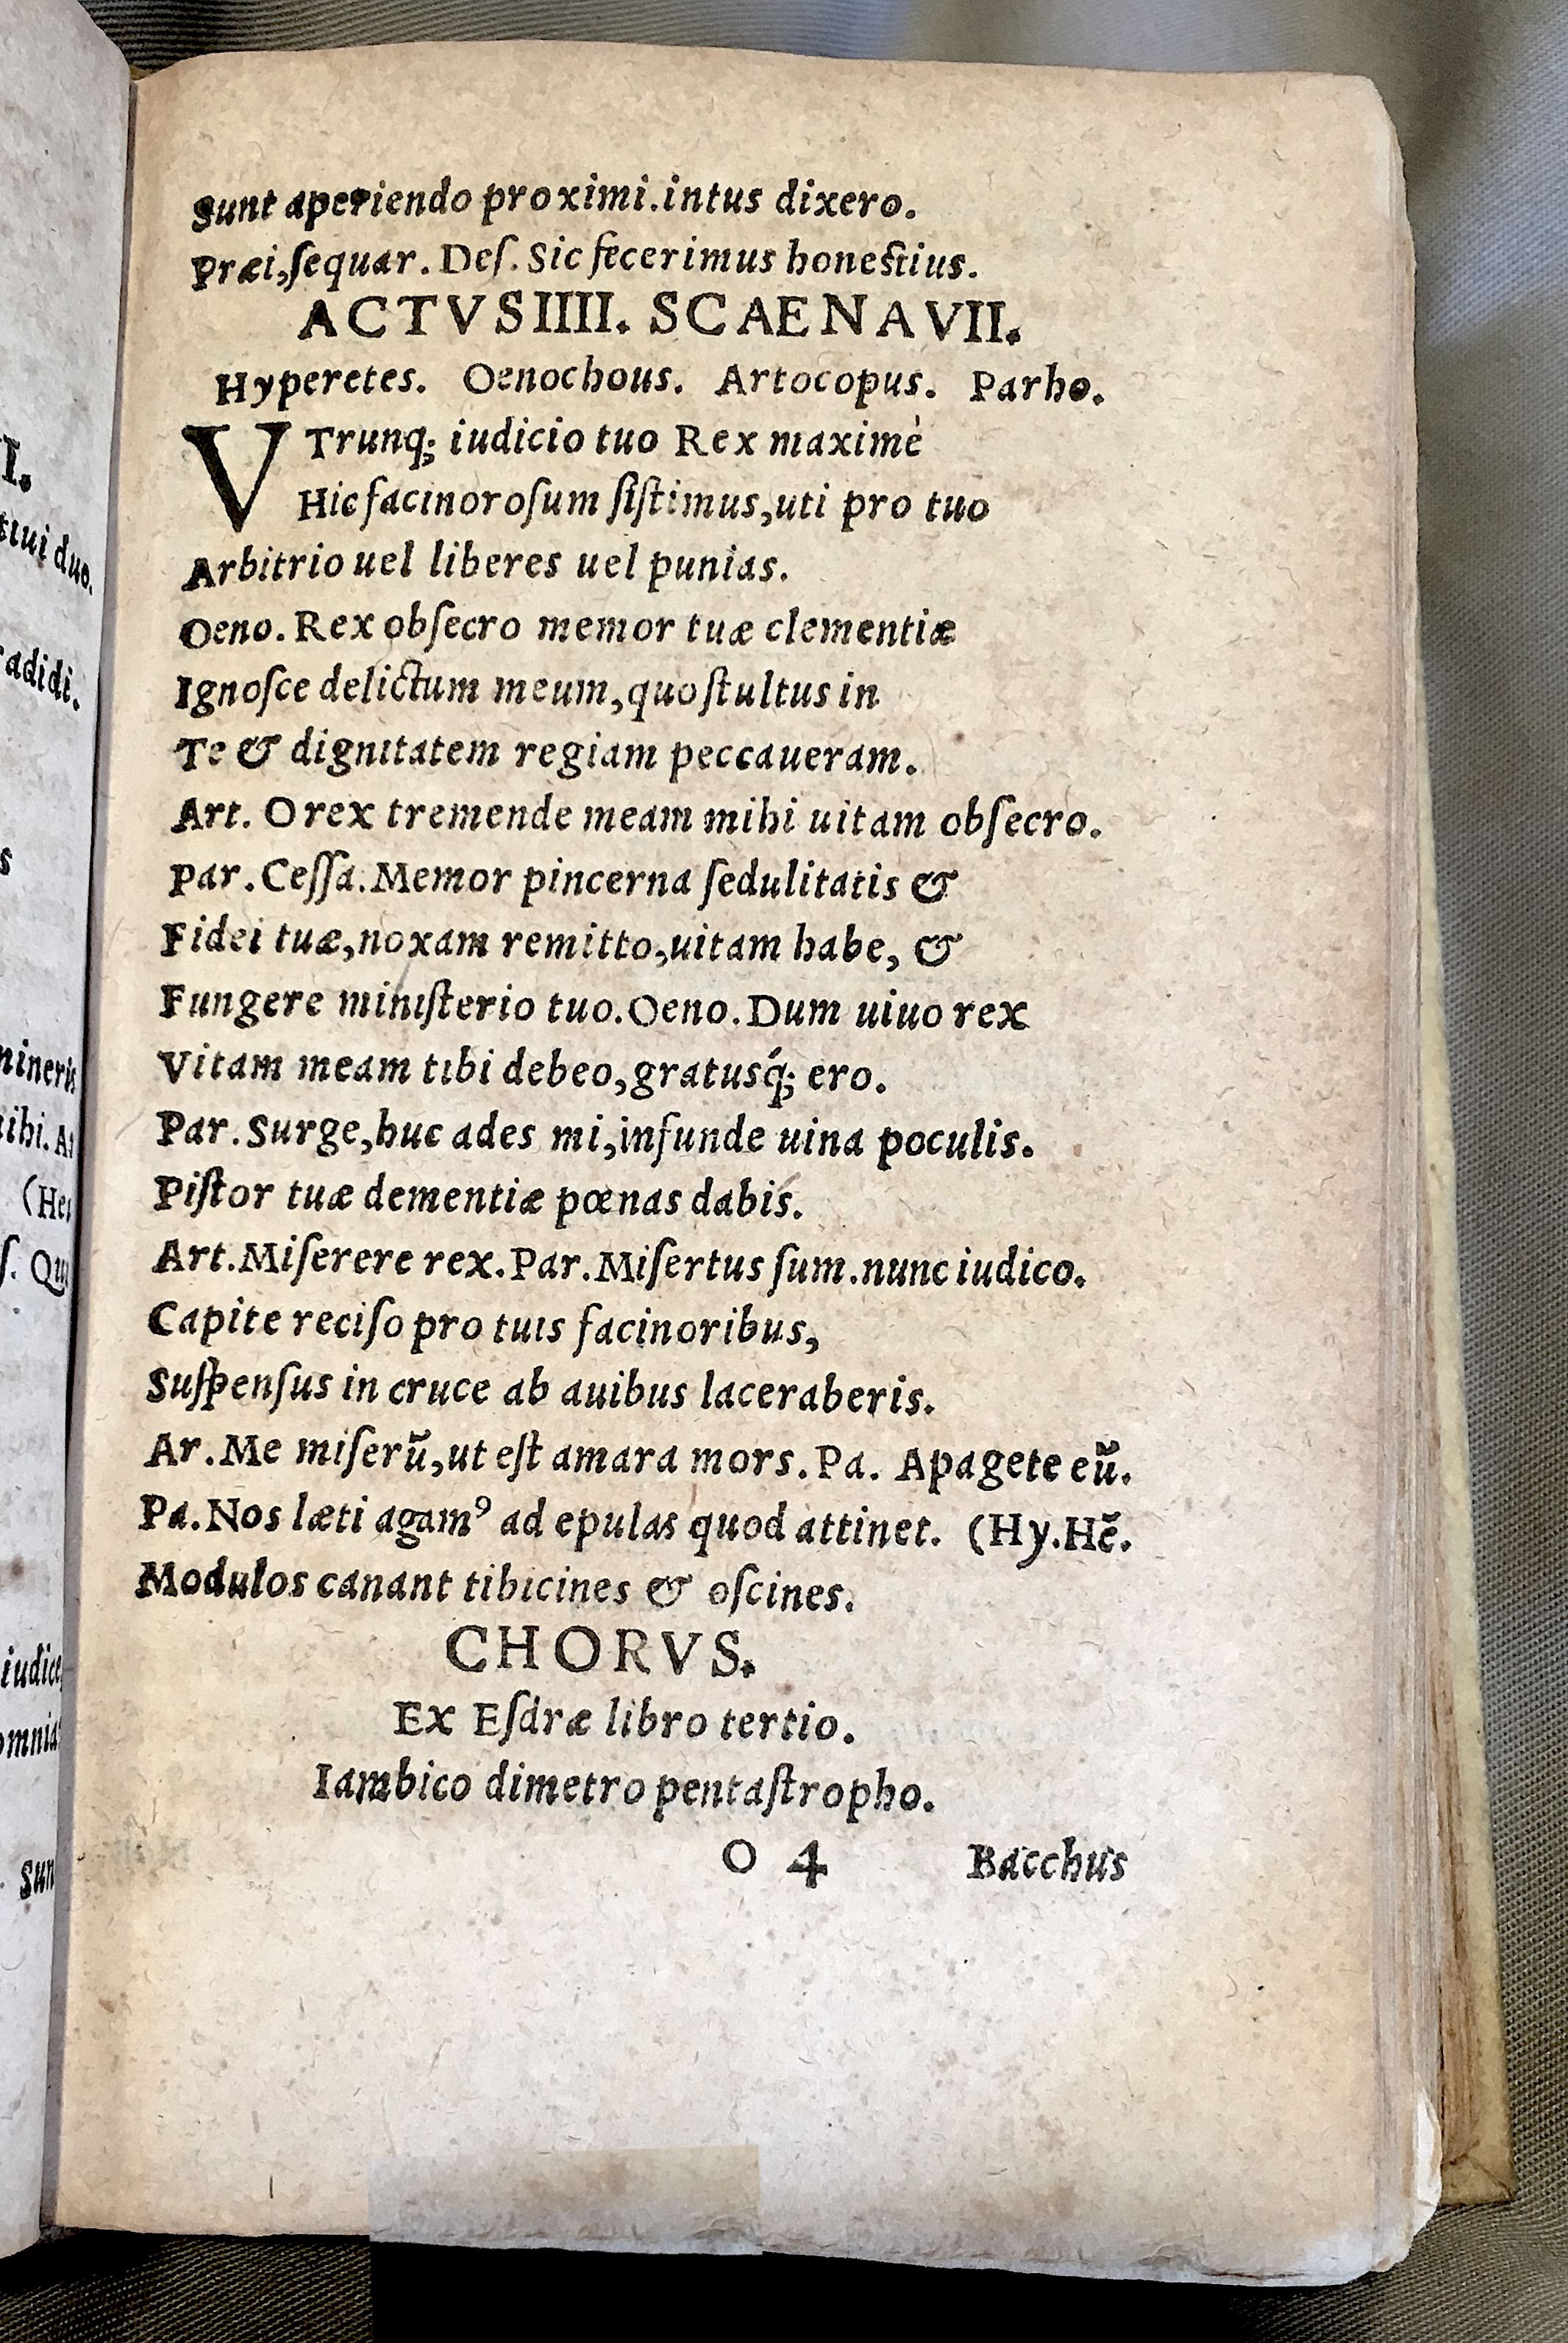 Sunt aperiendo proximi.intus dixero.
Præi,ſequar. Deſ. Sic fecerimus honeſtius.
ACTVS IIII. SCAENA VII.
Hyperetes. Oenochous. Artocopus. Parho.
VTrunq; iudicio tuo Rex maximè
Hic facinoroſum ſiſtimus,uti pro tuo
Arbitrio uel liberes uel punias.
Oeno. Rex obſecro memor tuæ clementiæ
Ignoſce delictum meum,quo ſtultus in
Te & dignitatem regiam peccaueram.
Art. O rex tremende meam mihi uitam obſecro.
Par. Ceſſa. Memor pincerna ſedulitatis &
Fidei tuæ,noxam remitto,uitam habe, &
Fungere miniſterio tuo. Oeno. Dum uiuo rex
Vitam meam tibi debeo,gratusq́; ero.
Par. Surge,huc ades mi,infunde uina poculis.
Piſtor tuæ dementiæ pœnas dabis.
Art. Miſerere rex. Par. Miſertus ſum.nunc iudico.
Capite reciſo pro tuis facinoribus,
Suſpenſus in cruce ab auibus laceraberis.
Ar. Me miſerũ,ut eſt amara mors. Pa. Apagete eũ.
Pa. Nos læti agamꝰ ad epulas quod attinet. (Hy. Hẽ.
Modulos canant tibicines & oſcines.
CHORVS.
Ex Eſdræ libro tertio.
Iambico dimetro pentaſtropho.
O 4 Bacchus
I.
tiui duo.
radidi.
s
mineris
(He
ſ. Qu
iudice
omnia
Sun